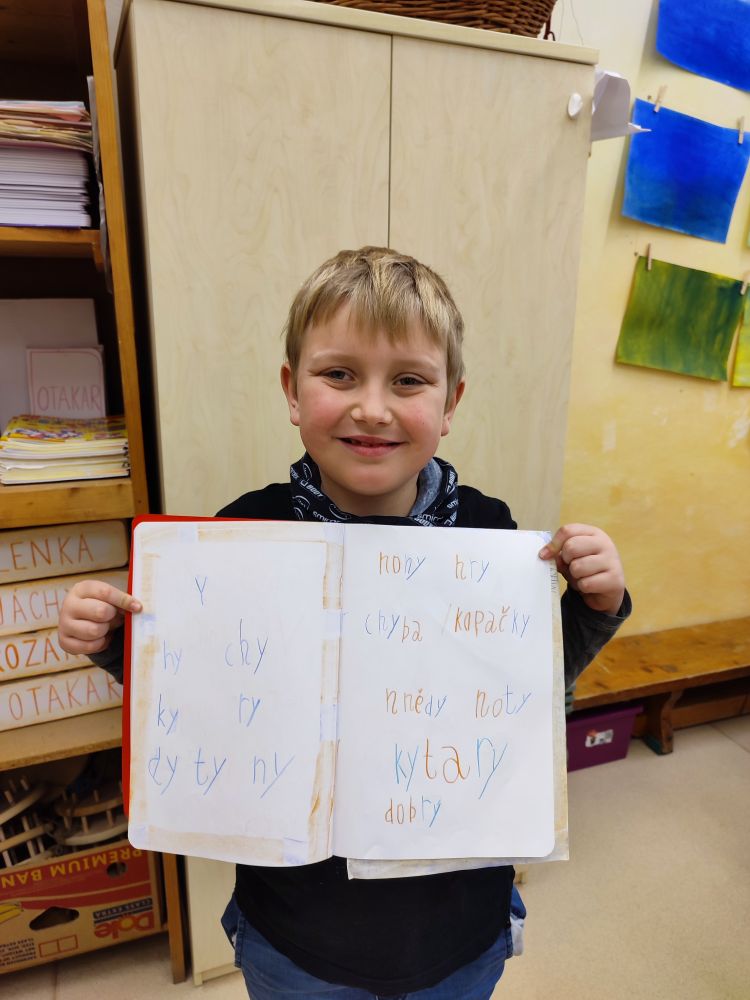 OTAKAR
LENKA
JÁCHY
ROZÁ
OTAKAR
PREMIUM BAN
Dole
y
hy chy
ky ry
dy ty ny
nohy hry
chyba /kopačky
hnědy noty
kytary
dobry